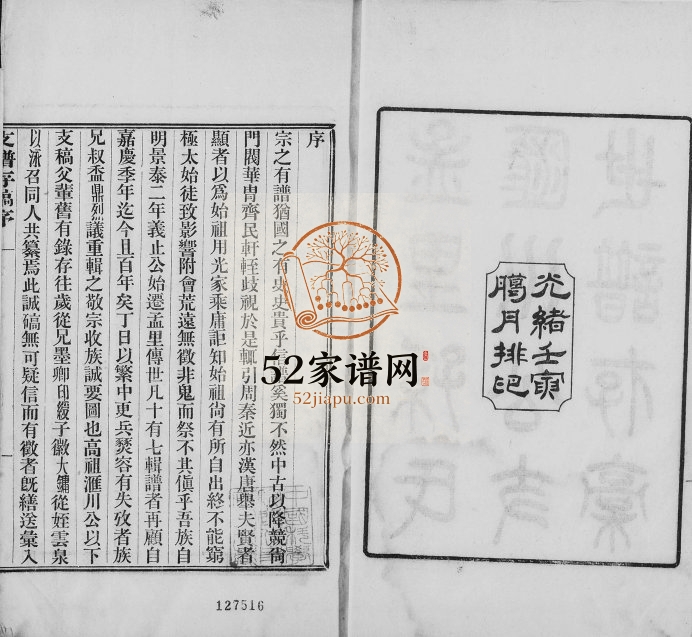 光緒壬寅
臘月排印
序
宗之有譜猶國之有史史貴乎
奚獨不然中古以降競尙
門閥華冑齊民軒輊歧視於是輒引周秦近亦漢唐舉夫賢者
顯者以爲始祖用光家乘庸詎知始祖尙有所自出終不能窮
極太始徒致影響附會荒遠無徵非鬼而祭不其傎乎吾族自
明景泰二年義止公始遷孟里傳世凡十有七輯譜者再顧自
嘉慶季年迄今且百年矣丁日以繁中更兵燹容有失攷者族
兄叔盉鼎烈議重輯之敬宗收族誠要圖也高祖滙川公以下
支稿父輩舊有錄存往歲從兄墨卿印綬子徽大鏞從姪雲泉
以泳召同人共纂焉此誠碻無可疑信而有徵者旣繕送彙入
支譜存稿序
52家谱网
52jiapu.com
127516